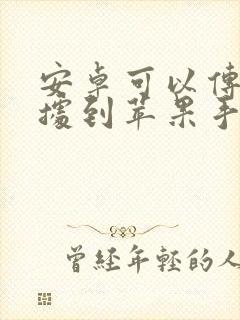 安卓可以傳
據到苹果手
曾經年輕的人